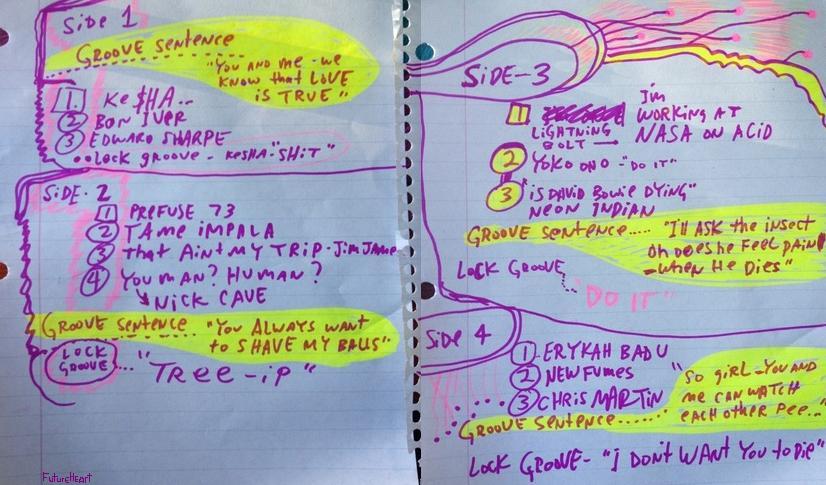 Side 1
GROOVE SENTENCE
"YOU AND ME - WE
KNOW THAT LOVE
IS TRUE"
1. KE$HA..
2 BON IVER
3 EDWARD SHARPE
LOCK GROOVE - KESHA - "SHIT"
SIDE - 2
1 PREFUSE 73
2 TAME IMPALA
3 THAT AIN'T MY TRIP - JIM JAMES
4 YOU MAN? HUMAN?
NICK CAVE
GROOVE SENTENCE "YOU ALWAYS WANT
to SHAVE MY BALLS"
LOCK
GROOVE... "TREE - iP"
FutureHeart
SIDE - 3
1 I'm
LIGHTNING WORKING AT
BOLT NASA ON ACID
2 YOKO ONO - "DO IT"
3 "IS DAVID BOWIE DYING"
NEON INDIAN
GROOVE SENTENCE..... "I'll ASK the INSECT
Oh DOES he FEEL PAIN
- WHEN HE DIES"
LOCK GROOVE
"DO IT"
SIDE 4
1 ERYKAH BADU
2 NEW FUMES
3 CHRIS MARTIN
GROOVE SENTENCE......
"SO GIRL - YOU AND
ME CAN WATCH
EACH OTHER PEE...."
LOCK GROOVE - "I DON'T WANT YOU TO DIE"